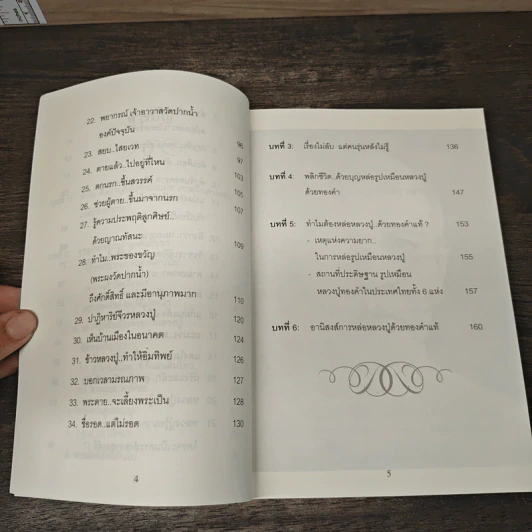 22. พยากรณ์ เจ้าอาวาสวัดปากน้ำ
องค์ปัจจุบัน 96
23. สยบ..ไสยเวท 97
24. ตายแล้ว..ไปอยู่ที่ไหน 103
25. ตกนรก..ขึ้นสวรรค์ 105
26. ช่วยผู้ตาย..ขึ้นมาจากนรก 107
27. รู้ความประพฤติลูกศิษย์..
ด้วยญาณทัสนะ 109
28. ทำไม..พระของขวัญ
(พระผงวัดปากน้ำ)
ถึงศักดิ์สิทธิ์ และมีอนุภาพมาก 110
29. ปาฏิหาริย์จีวรหลวงปู่ 120
30. เห็นบ้านเมืองในอนาคต 124
31. ข้าวหลวงปู่..ทำให้อิ่มทิพย์ 126
32. บอกเวลามรณภาพ 127
33. พระตาย..จะเลี้ยงพระเป็น 128
34. ชื่อรอด..แต่ไม่รอด 130
4
บทที่ 3: เรื่องไม่ลับ แต่คนรุ่นหลังไม่รู้ 136
บทที่ 4: พลิกชีวิต..ด้วยบุญหล่อรูปเหมือนหลวงปู่
ด้วยทองคำ 147
บทที่ 5: ทำไมต้องหล่อหลวงปู่..ด้วยทองคำแท้ ? 153
- เหตุแห่งความยาก..
ในการหล่อรูปเหมือนหลวงปู่ 155
- สถานที่ประดิษฐาน รูปเหมือน
หลวงปู่ทองคำในประเทศไทยทั้ง 6 แห่ง 157
บทที่ 6: อานิสงส์การหล่อหลวงปู่ด้วยทองคำแท้ 160
5